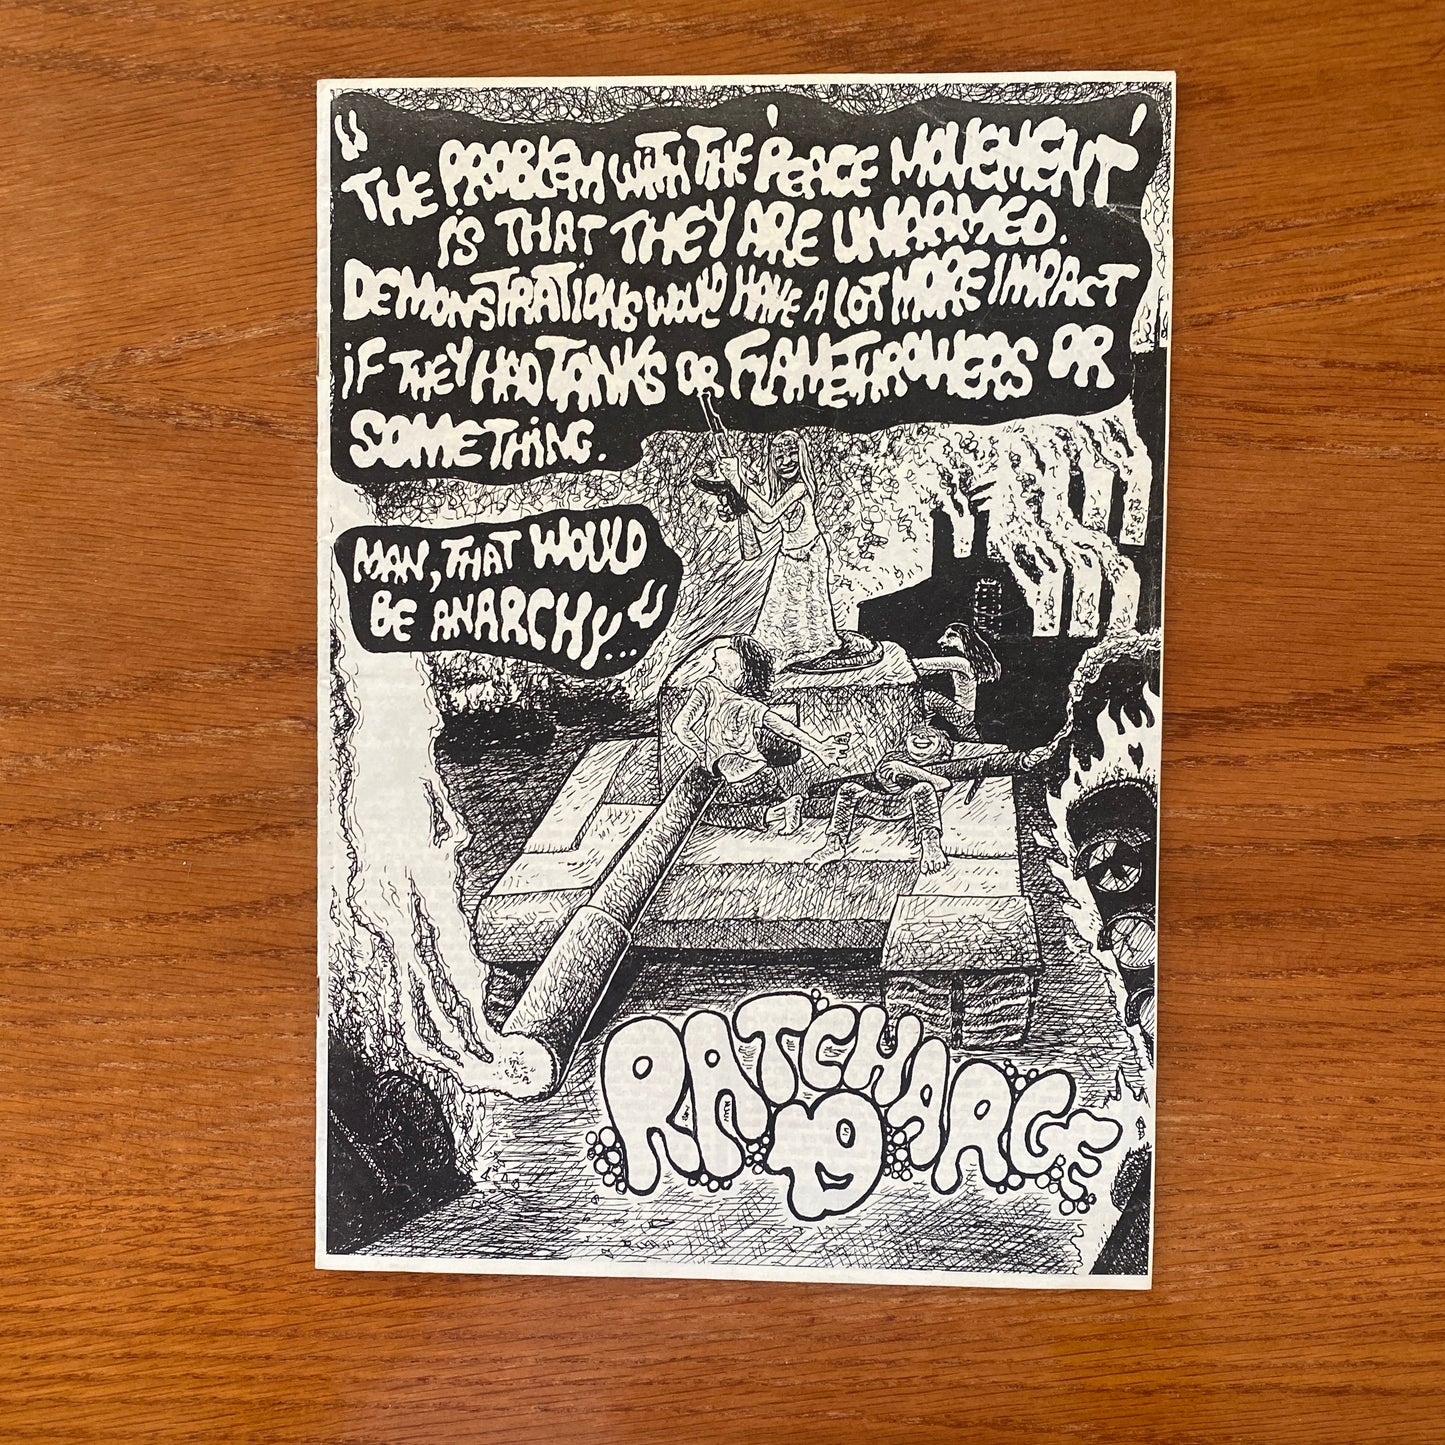 "THE PROBLEM WITH THE 'PEACE MOVEMENT'
IS THAT THEY ARE UNARMED.
DEMONSTRATIONS WOULD HAVE A LOT MORE IMPACT
IF THEY HAD TANKS OR FLAMETHROWERS OR
SOMETHING.
MAN, THAT WOULD
BE ANARCHY..."
RATCHARGE
19